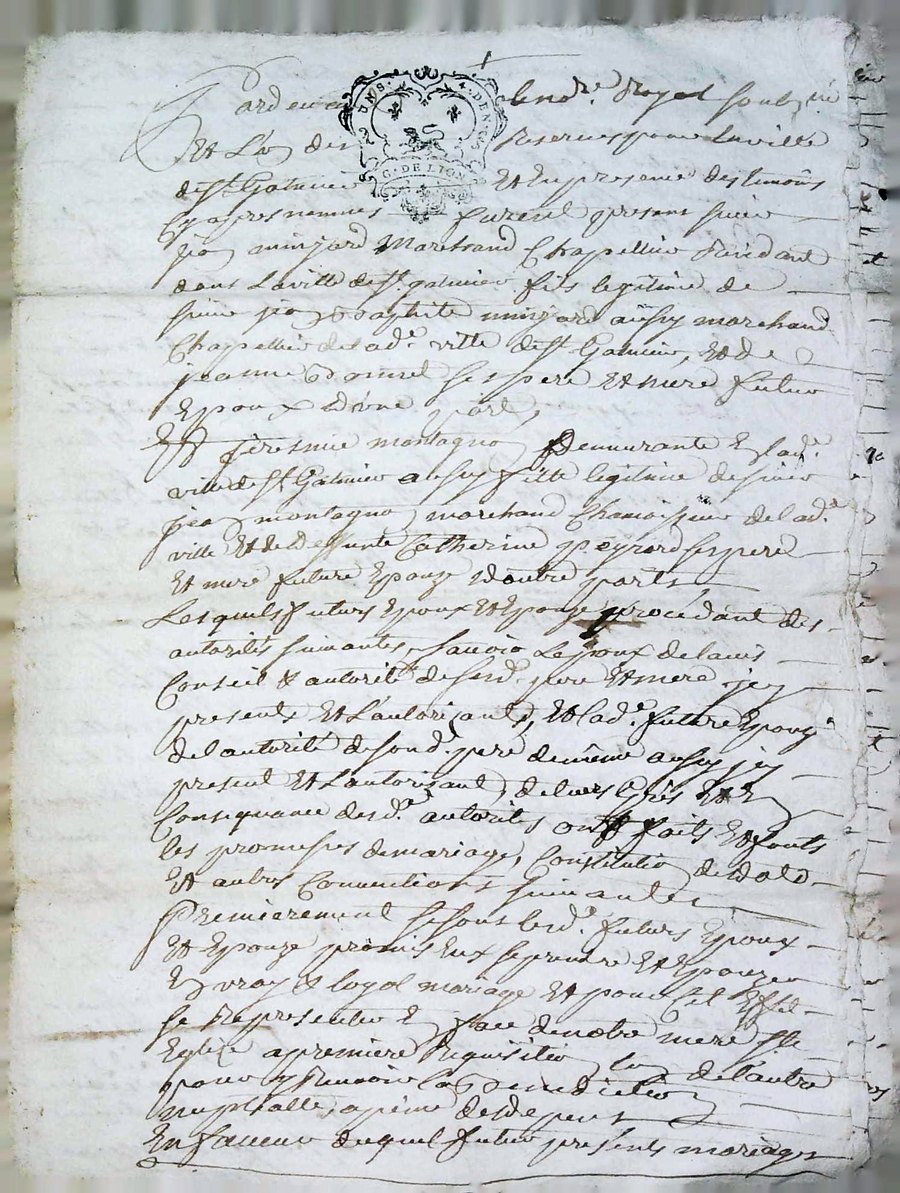 Pardevant le no.re Royal soubz né
Et L'un des Reservés pour la ville
de St Galmier Et En presence des temoins
Cy apres nommes furent presens sieur
Jean minjard Marchand Chapellier Residant
dans La ville de St galmier fils legitime de
sieur jean Baptiste minjard aussy marchand
Chapellier de lad.e ville de St Galmier, Et de
jeanne ses pere Et mere futur
Epoux d'une part,
Et montagno Demeurante En lad.e
ville de St Galmier aussy fille legitime de sieur
jean montagno marchand Chamoisseur de lad.e
ville Et de deffunte Catherine peyrard ses pere
Et mere future Epouze d'autre part,
Lesquels futurs Epoux Et Epouze procedant des
autorités suivantes, sauoir L'epoux de lauis
Conseil & autorité de sesd. pere Et mere jcy
presents Et L'autorisants, Et lad.e future Epouze
de l'autorité de sond. pere de même aussy jcy
present Et L'autorisant, de leurs Grés Et En
Consequance desd.es autorités ont faits Et fonts
les promesses de mariage, Constitution de dote
Et autres Conventions suivantes
Premierement se sont lesd.s futurs Epoux
Et Epouze promis Eux se prendre Et Epouzer
En vray & loyal mariage Et pour Cet Effet
se Representer En face de notre mere ste
Eglize a premiere Requisition lun de l'autre
pour y Recevoir la Benediction
nuptialle, a peine de depens
En faveur duquel futur presents mariage